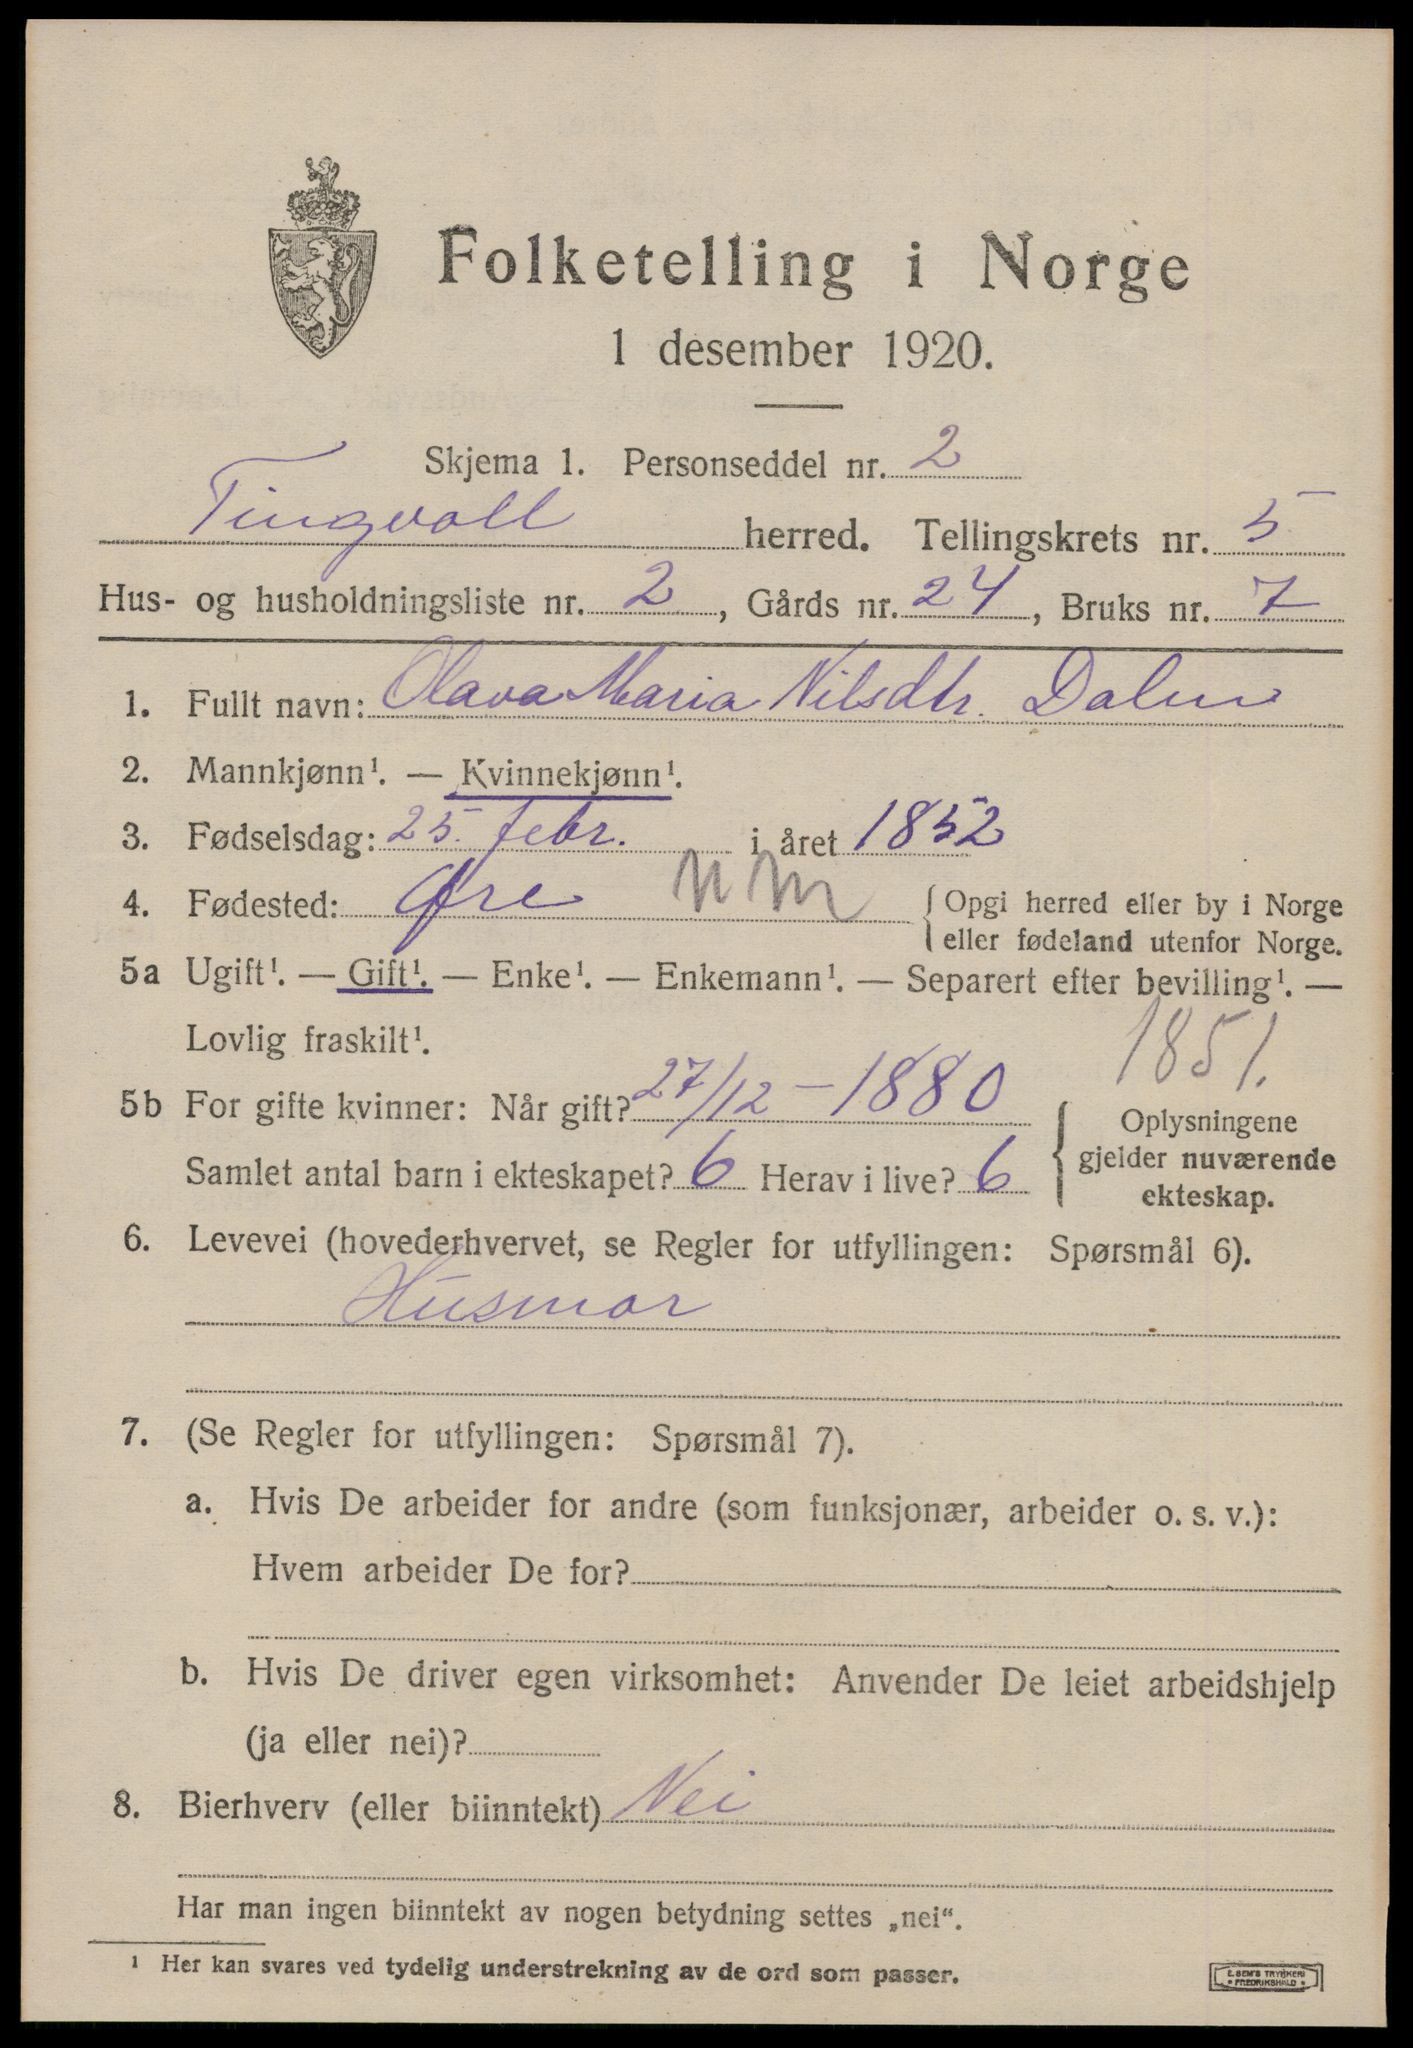 Folketelling i Norge
1 desember 1920.
Skjema 1. Personseddel nr. 2
Tingvoll herred. Tellingskrets nr. 5
Hus- og husholdningsliste nr. 2, Gårds nr. 24, Bruks nr. 7
1. Fullt navn: Olava Maria Nilsdtr. Dalen
2. Mannkjønn¹. — Kvinnekjønn¹.
3. Fødselsdag: 25. febr. i året 1852
4. Fødested: Øre { Opgi herred eller by i Norge
eller fødeland utenfor Norge.
5a Ugift¹. — Gift¹. — Enke¹. — Enkemann¹. — Separert efter bevilling¹. —
Lovlig fraskilt¹.
1851.
5b For gifte kvinner: Når gift? 27/12 - 1880
Samlet antal barn i ekteskapet? 6 Herav i live? 6
{ Oplysningene
gjelder nuværende
ekteskap.
6. Levevei (hovederhvervet, se Regler for utfyllingen: Spørsmål 6).
Husmor
7. (Se Regler for utfyllingen: Spørsmål 7).
a. Hvis De arbeider for andre (som funksjonær, arbeider o. s. v.):
Hvem arbeider De for?
b. Hvis De driver egen virksomhet: Anvender De leiet arbeidshjelp
(ja eller nei)?
8. Bierhverv (eller biinntekt) Nei
Har man ingen biinntekt av nogen betydning settes „nei“.
¹ Her kan svares ved tydelig understrekning av de ord som passer.
E. SEM'S TRYKKERI
FREDRIKSHALD